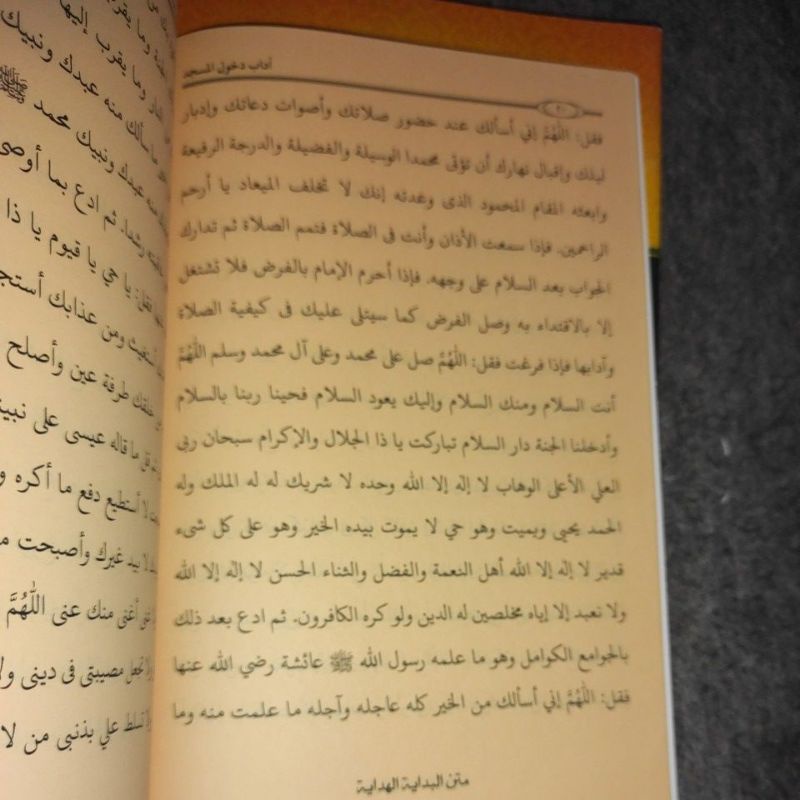 آداب دخول المسجد
٢٠
فقل: اللّٰهُمَّ إني أسألك عند حضور صلاتك وأصوات دعاتك وإدبار
ليلك وإقبال نهارك أن تؤتى محمدا الوسيلة والفضيلة والدرجة الرفيعة
وابعثه المقام المحمود الذى وعدته إنك لا تخلف الميعاد يا أرحم
الراحمين. فإذا سمعت الأذان وأنت فى الصلاة فتمم الصلاة ثم تدارك
الجواب بعد السلام على وجهه. فإذا أحرم الإمام بالفرض فلا تشتغل
إلا بالاقتداء به وصل الفرض كما سيتلى عليك فى كيفية الصلاة
وآدابها فإذا فرغت فقل: اللّٰهُمَّ صل على محمد وعلى آل محمد وسلم اللّٰهُمَّ
أنت السلام ومنك السلام وإليك يعود السلام فحينا ربنا بالسلام
وأدخلنا الجنة دار السلام تباركت يا ذا الجلال والإكرام سبحان ربى
العلي الأعلى الوهاب لا إلٰه إلا الله وحده لا شريك له له الملك وله
الحمد يحيى ويميت وهو حي لا يموت بيده الخير وهو على كل شىء
قدير لا إلٰه إلا الله أهل النعمة والفضل والثناء الحسن لا إلٰه إلا الله
ولا نعبد إلا إياه مخلصين له الدين ولو كره الكافرون. ثم ادع بعد ذلك
بالجوامع الكوامل وهو ما علمه رسول الله ﷺ عائشة رضي الله عنها
فقل: اللّٰهُمَّ إني أسألك من الخير كله عاجله وآجله ما علمت منه وما
متن البداية الهداية
وما يقرب إليها
سألك منه عبدك ونبيك
منه عبدك ونبيك محمد ﷺ
رشدا. ثم ادع بما أوصى
فقل: يا حي يا قيوم يا ذا
أستغيث ومن عذابك أستج
خلقك طرفة عين وأصلح
قل ما قاله عيسى على نبينا
لا أستطيع دفع ما أكره و
بيد غيرك وأصبحت م
أغنى منك عنى اللّٰهُمَّ
تجعل مصيبتى فى دينى ولا
تسلط علي بذنبى من لا